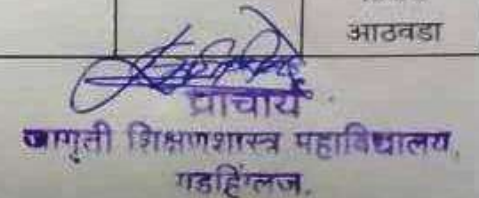 आठवडा
प्राचार्य
जागृती शिक्षणशास्त्र महाविद्यालय,
गडहिंग्लज.